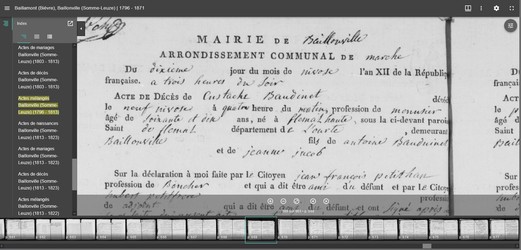 Baillamont (Bièvre), Baillonville (Somme-Leuze) | 1796 - 1871
Index
Actes de mariages
Baillonville (Somme-
Leuze) (1803 - 1813)
Actes de décès
Baillonville (Somme-
Leuze) (1803 - 1813)
Actes mélangés
Baillonville (Somme-
Leuze) (1796 - 1813)
Actes de naissances
Baillonville (Somme-
Leuze) (1813 - 1823)
Actes de mariages
Baillonville (Somme-
Leuze) (1813 - 1823)
Actes de décès
Baillonville (Somme-
Leuze) (1813 - 1823)
Actes de mariages
Baillonville (Somme-
Leuze) (1813 - 1822)
MAIRIE DE Baillonville
ARRONDISSEMENT COMMUNAL DE marche
Du dixieme jour du mois de nivose l'an XII de la Républiq
française. a trois heures du soir
ACTE DE DÉCÈS de Eustache Baudinet décéd
le neuf nivose à quatre heure du matin, profession de
âgé de soixante et dix ans, né à flemalhaute, sous la ci-devant paroi
Saint de flemal département de L'ourte, demeurant
Baillonville fils de antoine Baudinet
et de jeanne jacob
Sur la déclaration à moi faite par le Citoyen jean françois petithan
profession de et qui a dit être ami du défunt et par le Citoy
hubert petitfrere
de adjoint et qui a dit être ami du défunt et ont signé après